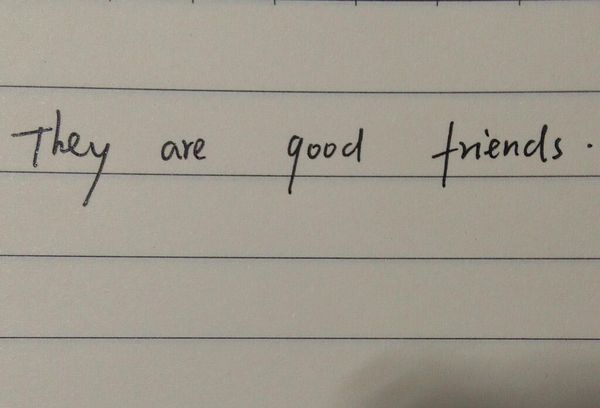 They are good friends.